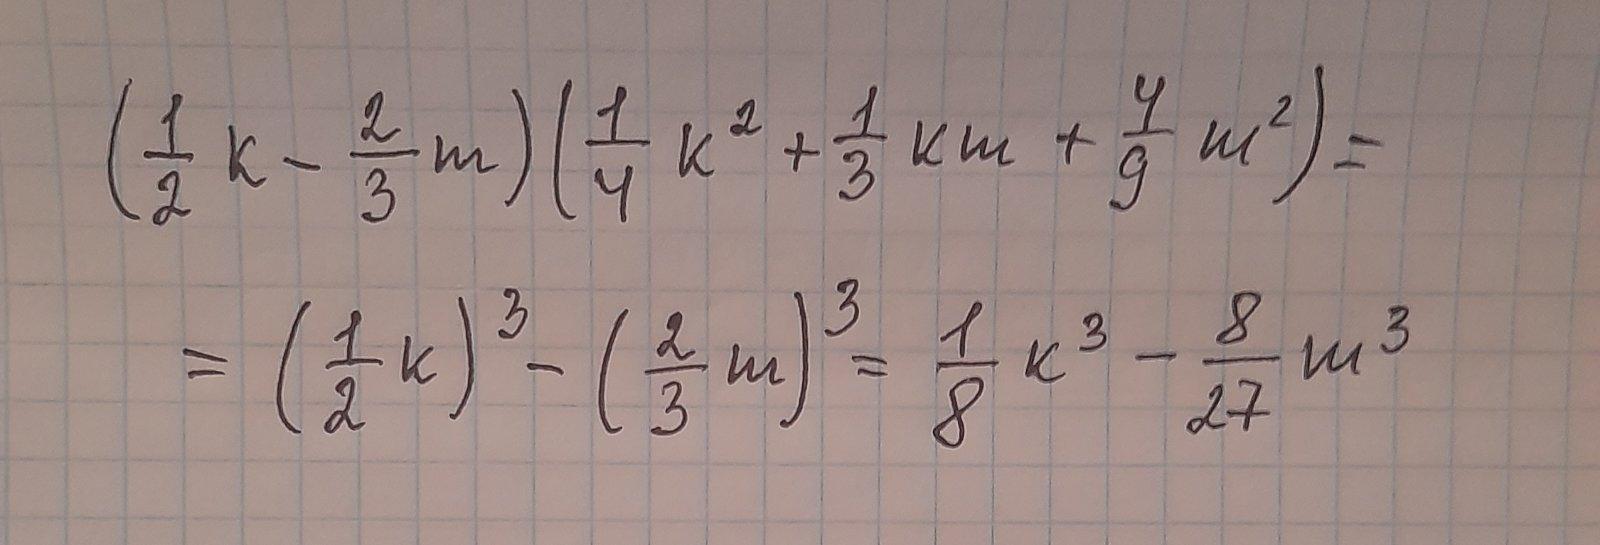 (1/2 k - 2/3 m)(1/4 k² + 1/3 km + 4/9 m²) =
= (1/2 k)³ - (2/3 m)³ = 1/8 k³ - 8/27 m³